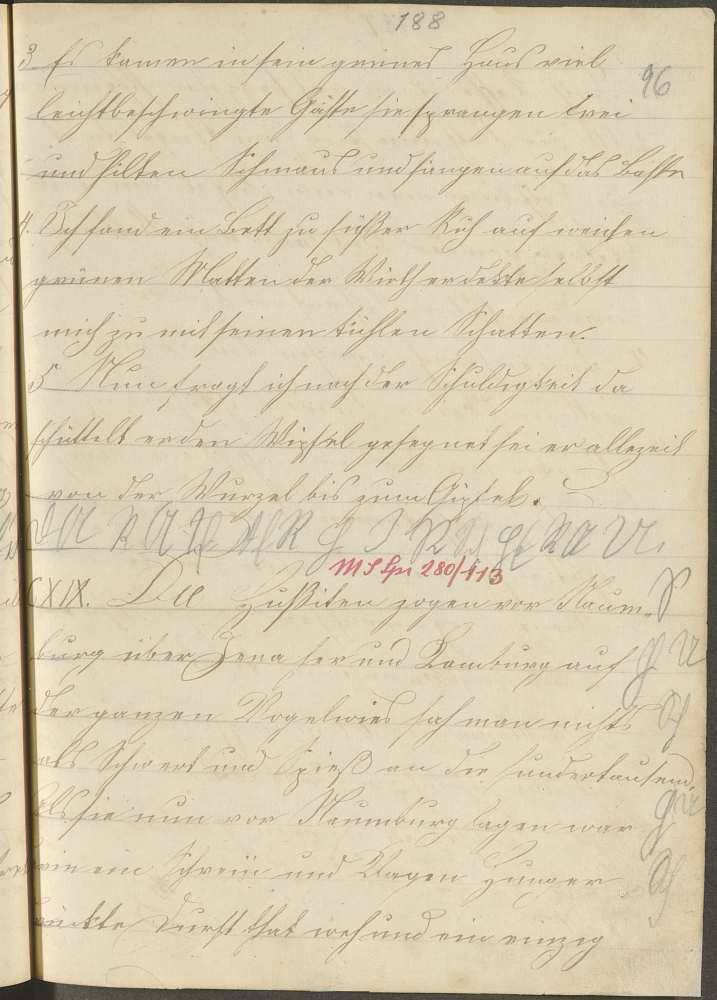 188
96
3 Es kamen in sein grünes Haus viel
leichtbeschwingte Gäste sie sprangen frei
und hilten Schmaus und sangen auf das Beste
4. Ich fand ein Bett zu süßer Ruh auf weichen
grünen Matten der Wirth er dekte selbst
mich zu mit seinen kühlen Schatten.
5 Nun fragt ich nach der Schuldigkeit da
schüttelt er den Wipfel gesegnet sei er allezeit
von der Wurzel bis zum Gipfel.
MS Spr 280/113
CXIX. Die Hußiten zogen vor Naum-
burg über Jena her und Kamburg auf
der ganzen Vogelwies sah man nichts
als Schwert und Spieß an die hunderttausend.
Als sie nun vor Naumburg lagen war
ein Schrein und Klagen Hunger
Durst that weh und ein einzig